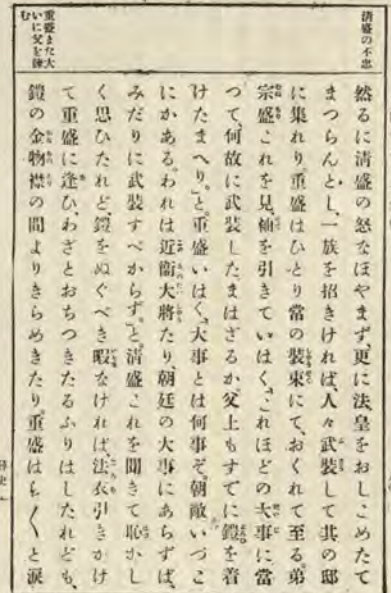 清盛の不忠
重盛また大
いに父を諫
む
然るに清盛の怒なほやまず、更に法皇をおしこめたて
まつらんとし、一族を招きければ、人々武裝して其の邸
に集れり。重盛はひとり常の裝束にて、おくれて至る。弟
宗盛これを見、袖を引きていはく、「これほどの大事に當
つて、何故に武裝したまはざるか。父上もすでに鎧を着
けたまへり。」と。重盛いはく、「大事とは何事ぞ。朝敵いづこ
にかある。われは近衞大將たり、朝廷の大事にあらずば、
みだりに武裝すべからず。」と。清盛これを聞きて恥かし
く思ひたれど、鎧をぬぐべき暇なければ、法衣引きかけ
て重盛に逢ひ、わざとおちつきたるふりはしたれども、
鎧の金物襟の間よりきらめきたり。重盛はら〳〵と淚